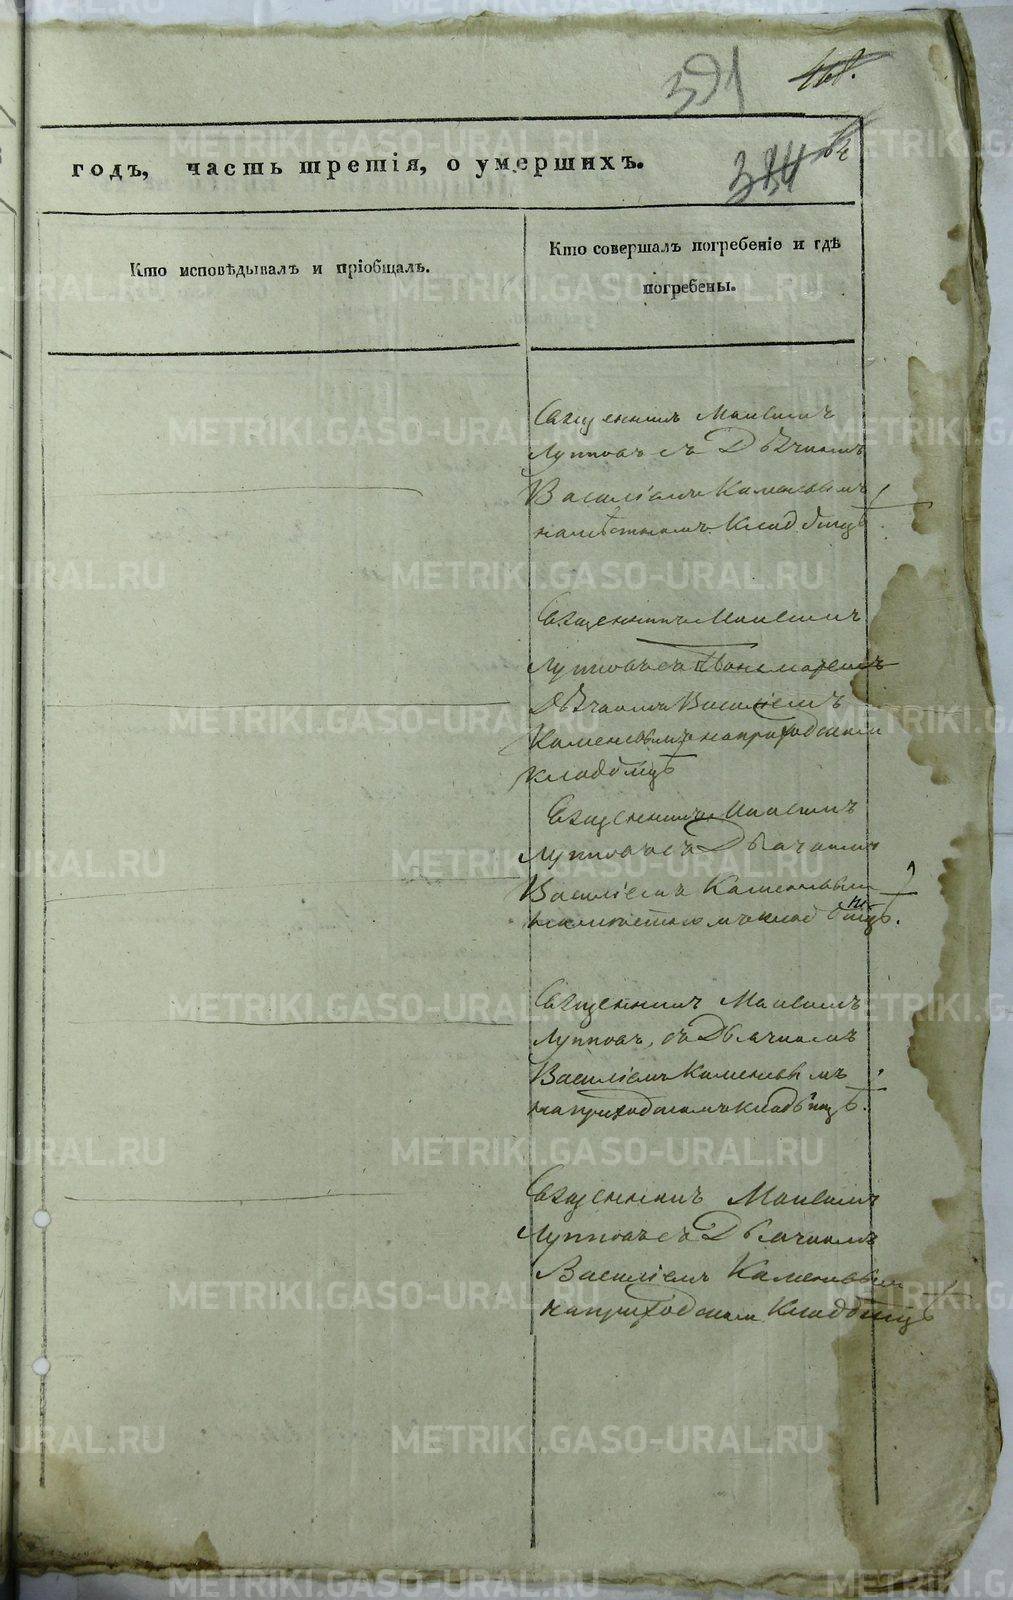 391
годъ, часть третія, о умершихъ.
334
Кто исповѣдывалъ и пріобщалъ.
Кто совершалъ погребеніе и гдѣ
погребены.
Священникъ Максимъ
Лупповъ съ Дьячкомъ
Василіемъ Каменевымъ
на мѣстномъ Кладбищѣ
Священникъ Максимъ
Лупповъ съ
Дьячкомъ Василіемъ
Каменевымъ на приходскомъ
кладбищѣ
Священникъ Максимъ
Лупповъ съ Дьячкомъ
Василіемъ Каменевым
на местномъ кладбищѣ.
Священникъ Максимъ
Лупповъ, съ Дьячкомъ
Василіемъ Каменевымъ
на приходскомъ кладбищѣ.
Священникъ Максимъ
Лупповъ съ Дьячкомъ
Василіемъ Каменевым
на приходском Кладбищѣ
METRIKI.GASO-URAL.RU